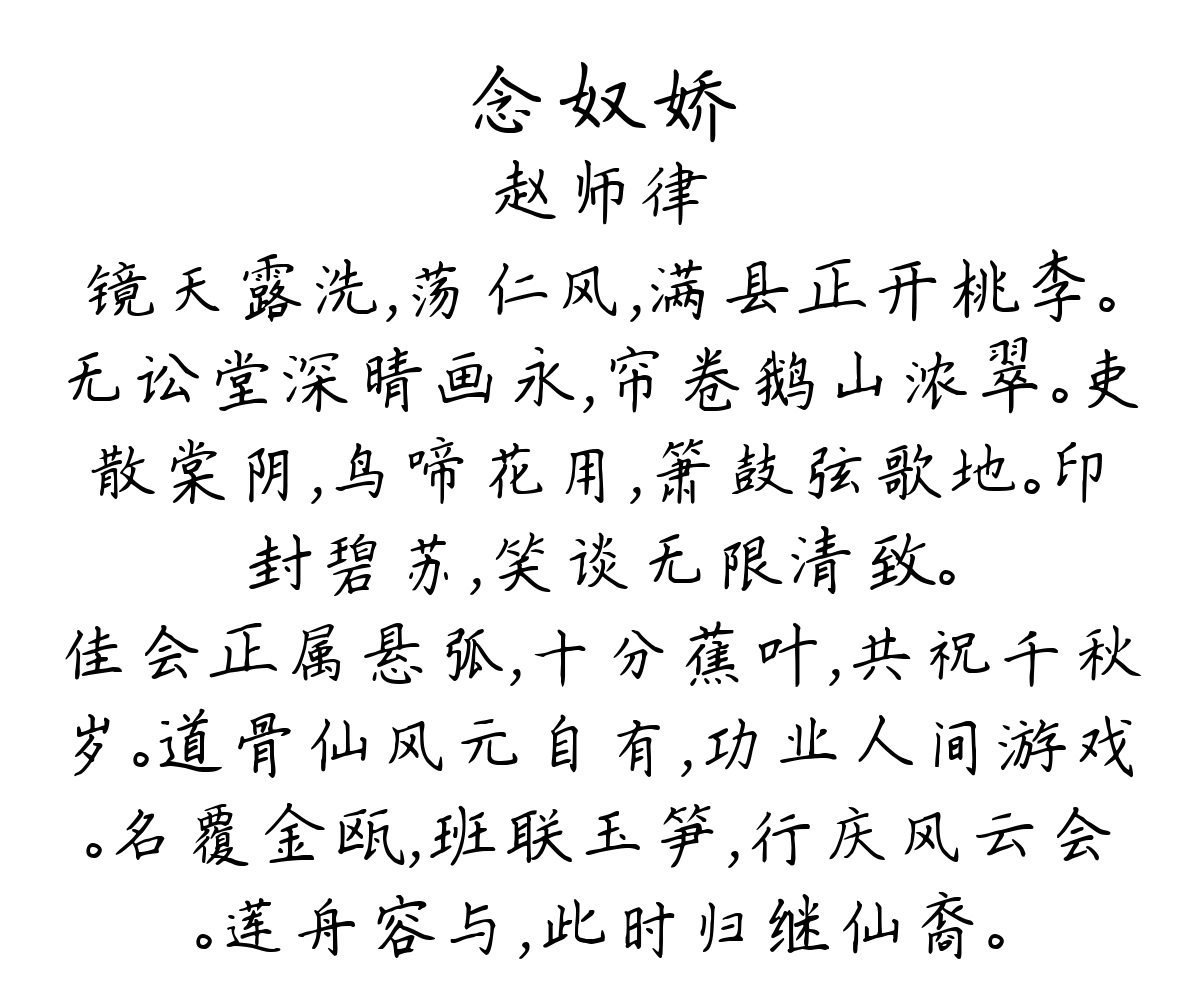 念奴娇
赵师律
镜天露洗,荡仁风,满县正开桃李。
无讼堂深晴画永,帘卷鹅山浓翠。吏
散棠阴,鸟啼花用,箫鼓弦歌地。印
封碧苏,笑谈无限清致。
佳会正属悬弧,十分蕉叶,共祝千秋
岁。道骨仙风元自有,功业人间游戏
。名覆金瓯,班联玉笋,行庆风云会
。莲舟容与,此时归继仙裔。